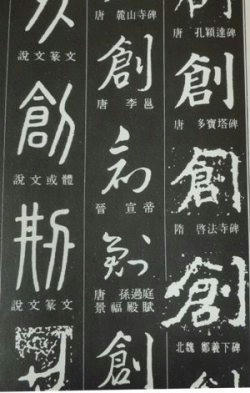 唐 孔穎達碑
創
唐 多寶塔碑
創
隋 啓法寺碑
創
北魏 鄭羲下碑
唐 麓山寺碑
創
唐 李邕
創
晉 宣帝
創
唐 孫過庭
景福殿賦
創
說文篆文
創
說文或體
說文篆文